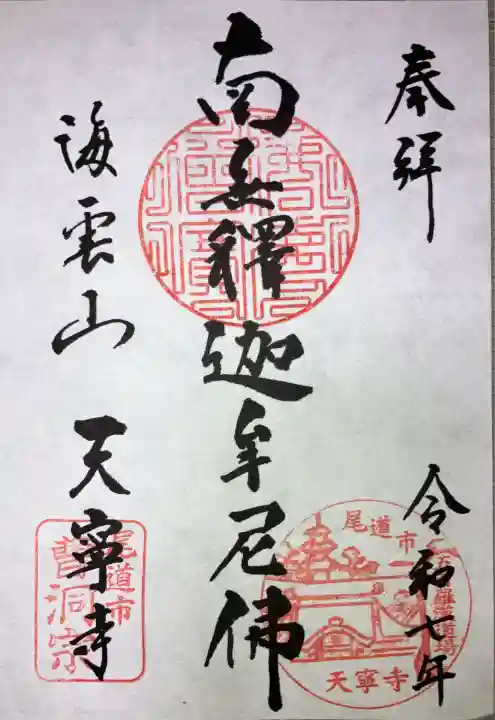 奉拝
令和七年
南無釋迦牟尼佛
海雲山 天寧寺
尾道市
五百羅漢道場
天寧寺
尾道市
曹洞宗